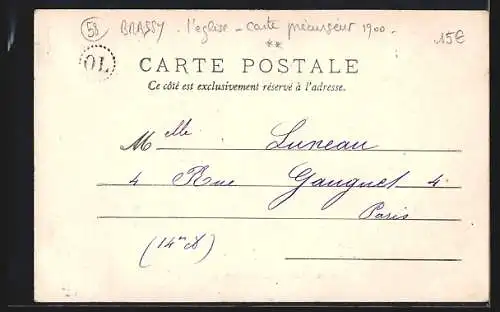 58 BRASSY. l'eglise - carte précurseur 1900.
15€
OL
CARTE POSTALE
Ce côté est exclusivement réservé à l'adresse.
Melle Luneau
4 Rue Gauguet 4
Paris
(14me A)